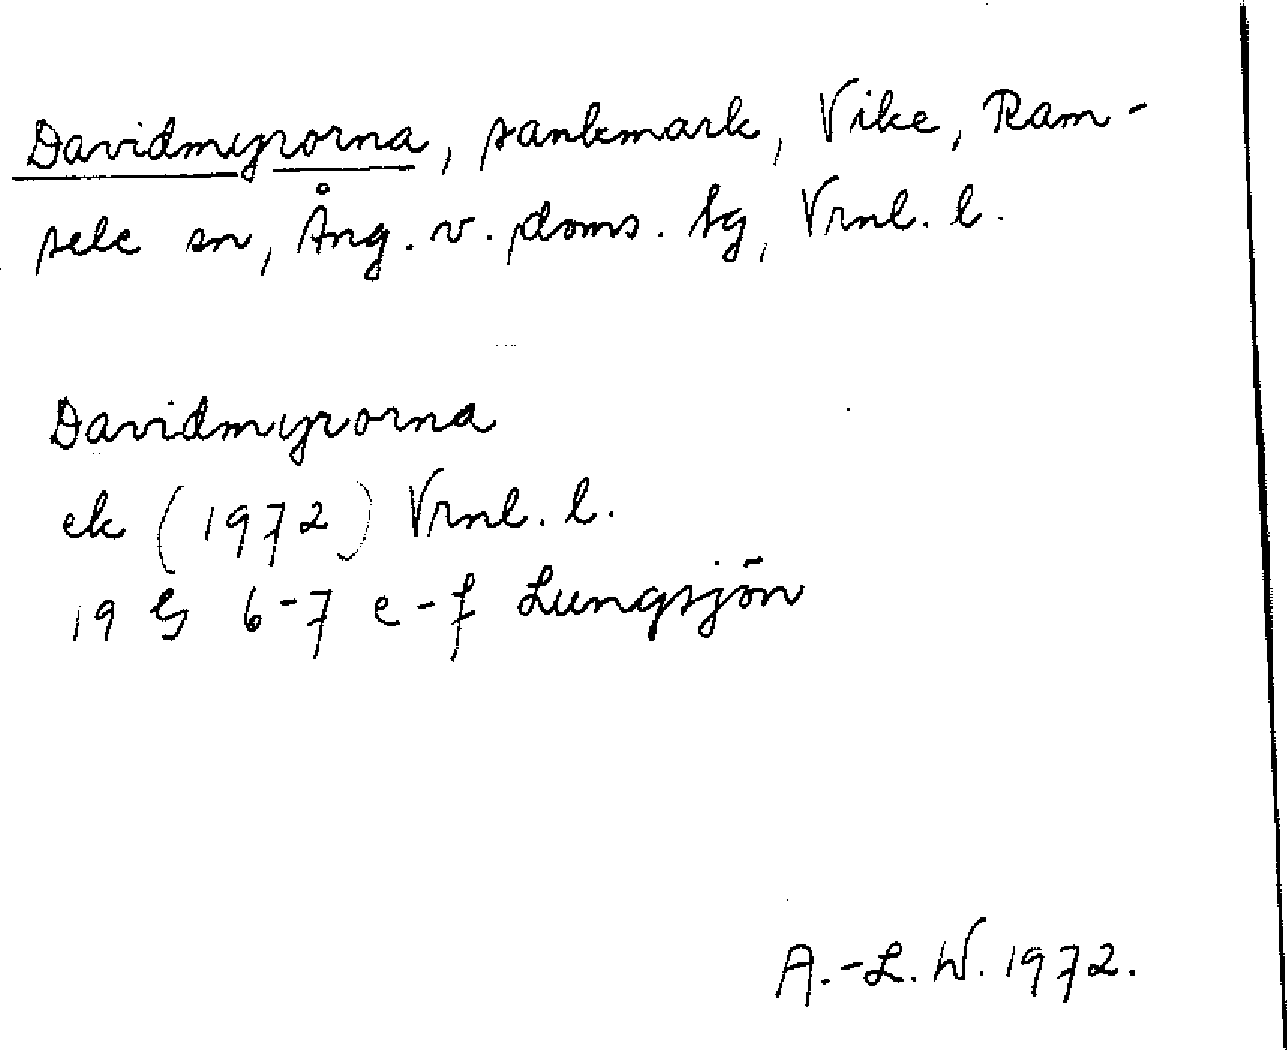 Davidmyrorna, sankmark, Vike, Ram-
sele sn, Ång. v. doms. tg, Vrnl. l.
Davidmyrorna
ek (1972) Vrnl. l.
19 G 6-7 e-f Lungsjön
A.-L. W. 1972.